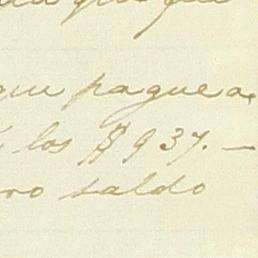 que pague a
los $937. —
ro saldo